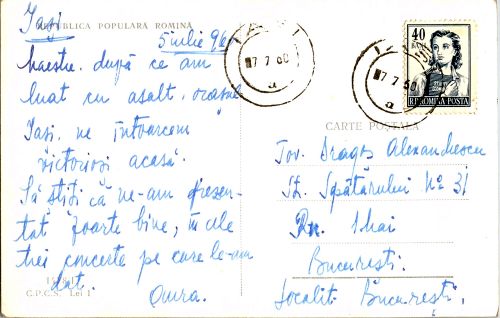 REPUBLICA POPULARA ROMINA
Iași
5 iulie 960
Maestre, după ce am
luat cu asalt, orașul
Iași, ne întoarcem
victorioși acasă.
Să știți că ne-am prezen-
tat foarte bine, în cele
trei concerte pe care le-am
dat.
C.P.C.S. Lei 1
IAȘI
7 7 60
a
IAȘI
7 7 60
a
40
BANI
R.P. ROMINA POSTA
CARTE POSTALA
Tov. Dragoș Alexandrescu
St. Spătarului No 31
Rn. 1 Mai
București.
Localit. București.